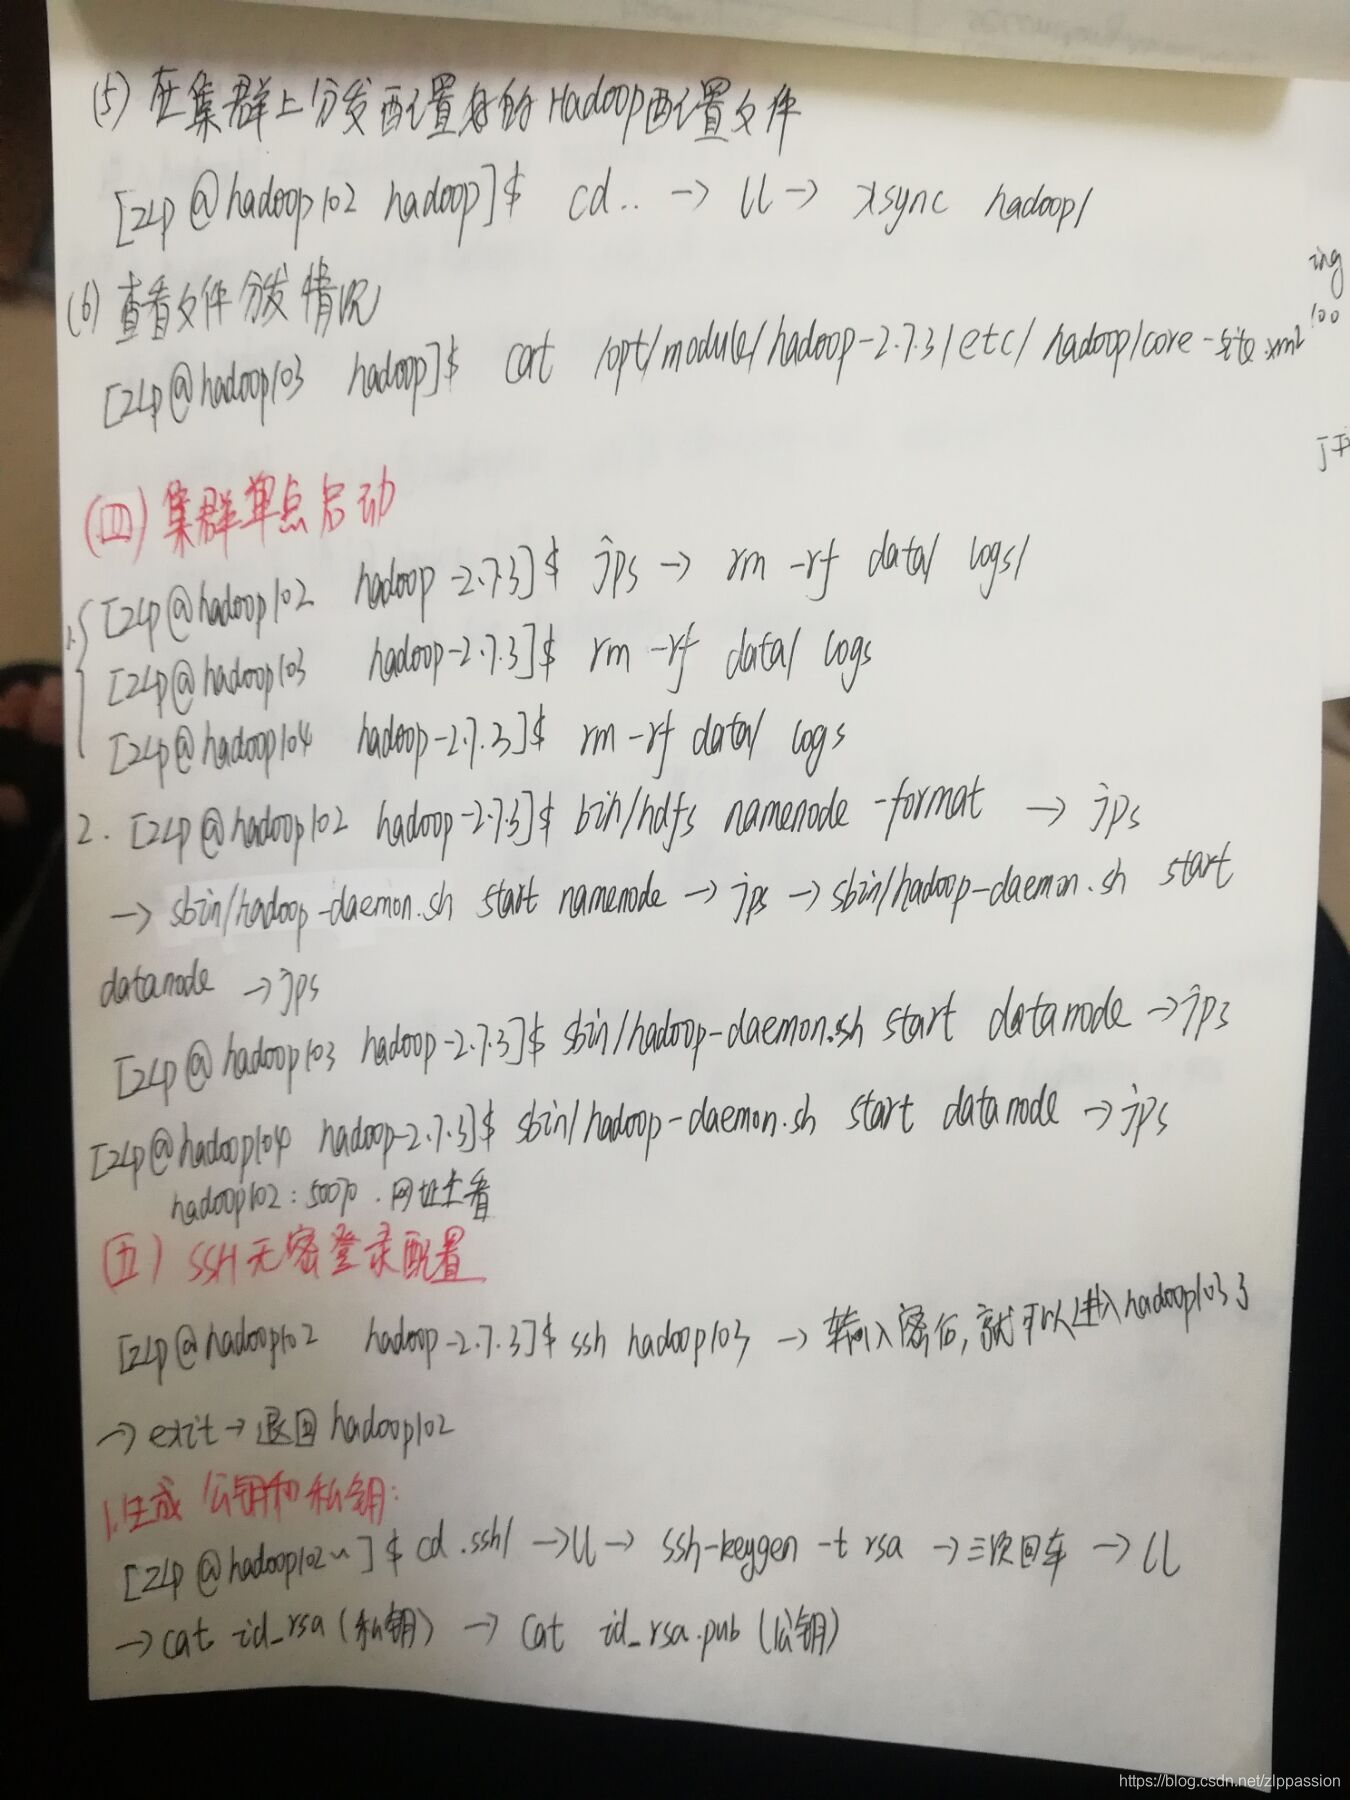 (5) 在集群上分发配置好的Hadoop配置文件
[zlp@hadoop102 hadoop]$ cd.. → ll → xsync hadoop/
(6) 查看文件分发情况
[zlp@hadoop103 hadoop]$ cat /opt/module/hadoop-2.7.3/etc/hadoop/core-site.xml
ing
100
(四) 集群单点启动
1. [zlp@hadoop102 hadoop-2.7.3]$ jps → rm -rf data/ logs/
[zlp@hadoop103 hadoop-2.7.3]$ rm -rf data/ logs
[zlp@hadoop104 hadoop-2.7.3]$ rm -rf data/ logs
2. [zlp@hadoop102 hadoop-2.7.3]$ bin/hdfs namenode -format → jps
→ sbin/hadoop-daemon.sh start namenode → jps → sbin/hadoop-daemon.sh start
datanode → jps
[zlp@hadoop103 hadoop-2.7.3]$ sbin/hadoop-daemon.sh start datanode → jps
[zlp@hadoop104 hadoop-2.7.3]$ sbin/hadoop-daemon.sh start datanode → jps
hadoop102:50070.网址查看
(五) SSH无密登录配置
[zlp@hadoop102 hadoop-2.7.3]$ ssh hadoop103 → 输入密码,就可以进入hadoop103了
→ exit → 退回hadoop102
1.生成公钥和私钥:
[zlp@hadoop102 ~]$ cd .ssh/ → ll → ssh-keygen -t rsa → 三次回车 → ll
→ cat id_rsa (私钥) → cat id_rsa.pub (公钥)
https://blog.csdn.net/zlppassion